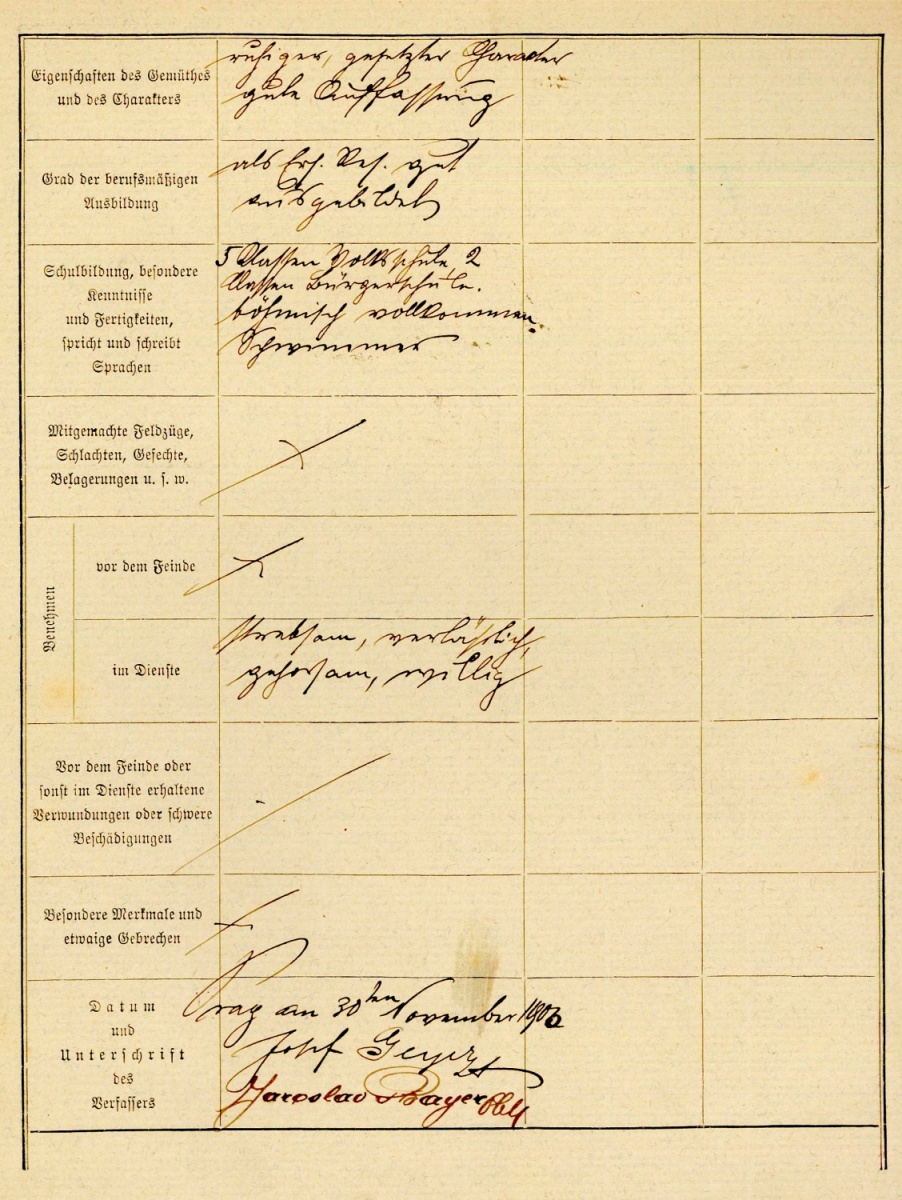 Eigenschaften des Gemüthes
und des Charakters
ruhiger, gesetzter Charakter
gute Auffassung
Grad der berufsmäßigen
Ausbildung
als Ers. Res. gut
ausgebildet
Schulbildung, besondere
Kenntnisse
und Fertigkeiten,
spricht und schreibt
Sprachen
5 Klassen Volksschule, 2
Klassen Bürgerschule.
böhmisch vollkommen.
Schwimmer
Mitgemachte Feldzüge,
Schlachten, Gefechte,
Belagerungen u. s. w.
Benehmen
vor dem Feinde
im Dienste
strebsam, verläßlich,
gehorsam, willig
Vor dem Feinde oder
sonst im Dienste erhaltene
Verwundungen oder schwere
Beschädigungen
Besondere Merkmale und
etwaige Gebrechen
Datum
und
Unterschrift
des
Verfassers
Prag am 30ten November 1906
Josef Geyer
Jaroslav Bayer Oblt